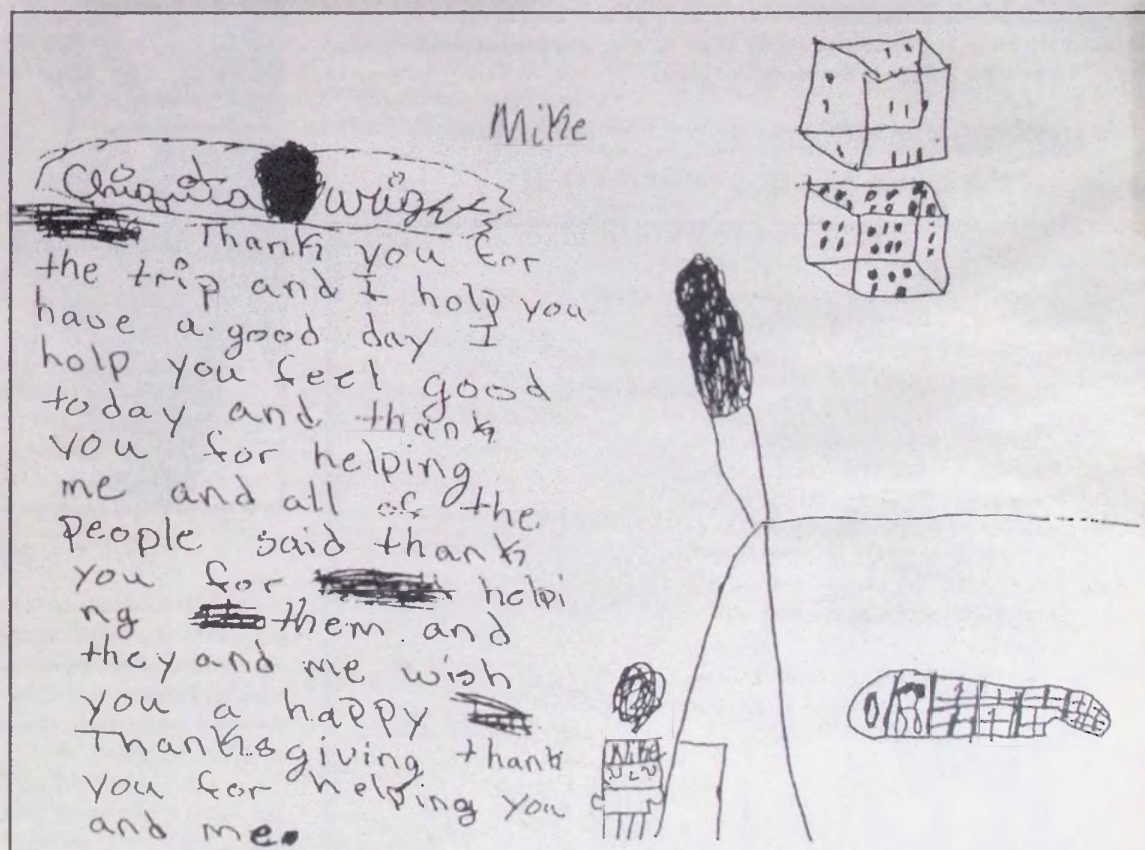 Mike
Chiquita Wright
Thank you for
the trip and I holp you
have a good day I
holp you feel good
today and thank
you for helping
me and all of the
people said thank
you for helpi
ng them and
they and me wish
you a happy
Thanksgiving thank
you for helping you
and me.